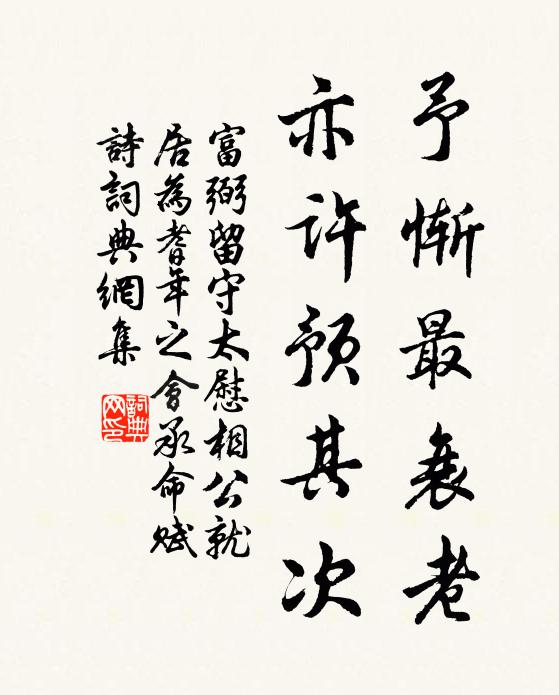 予慚最衰老
亦许預其次
富弼留守太慰相公就
居為耆年之會承命赋
詩詞典網集
詞典
网印